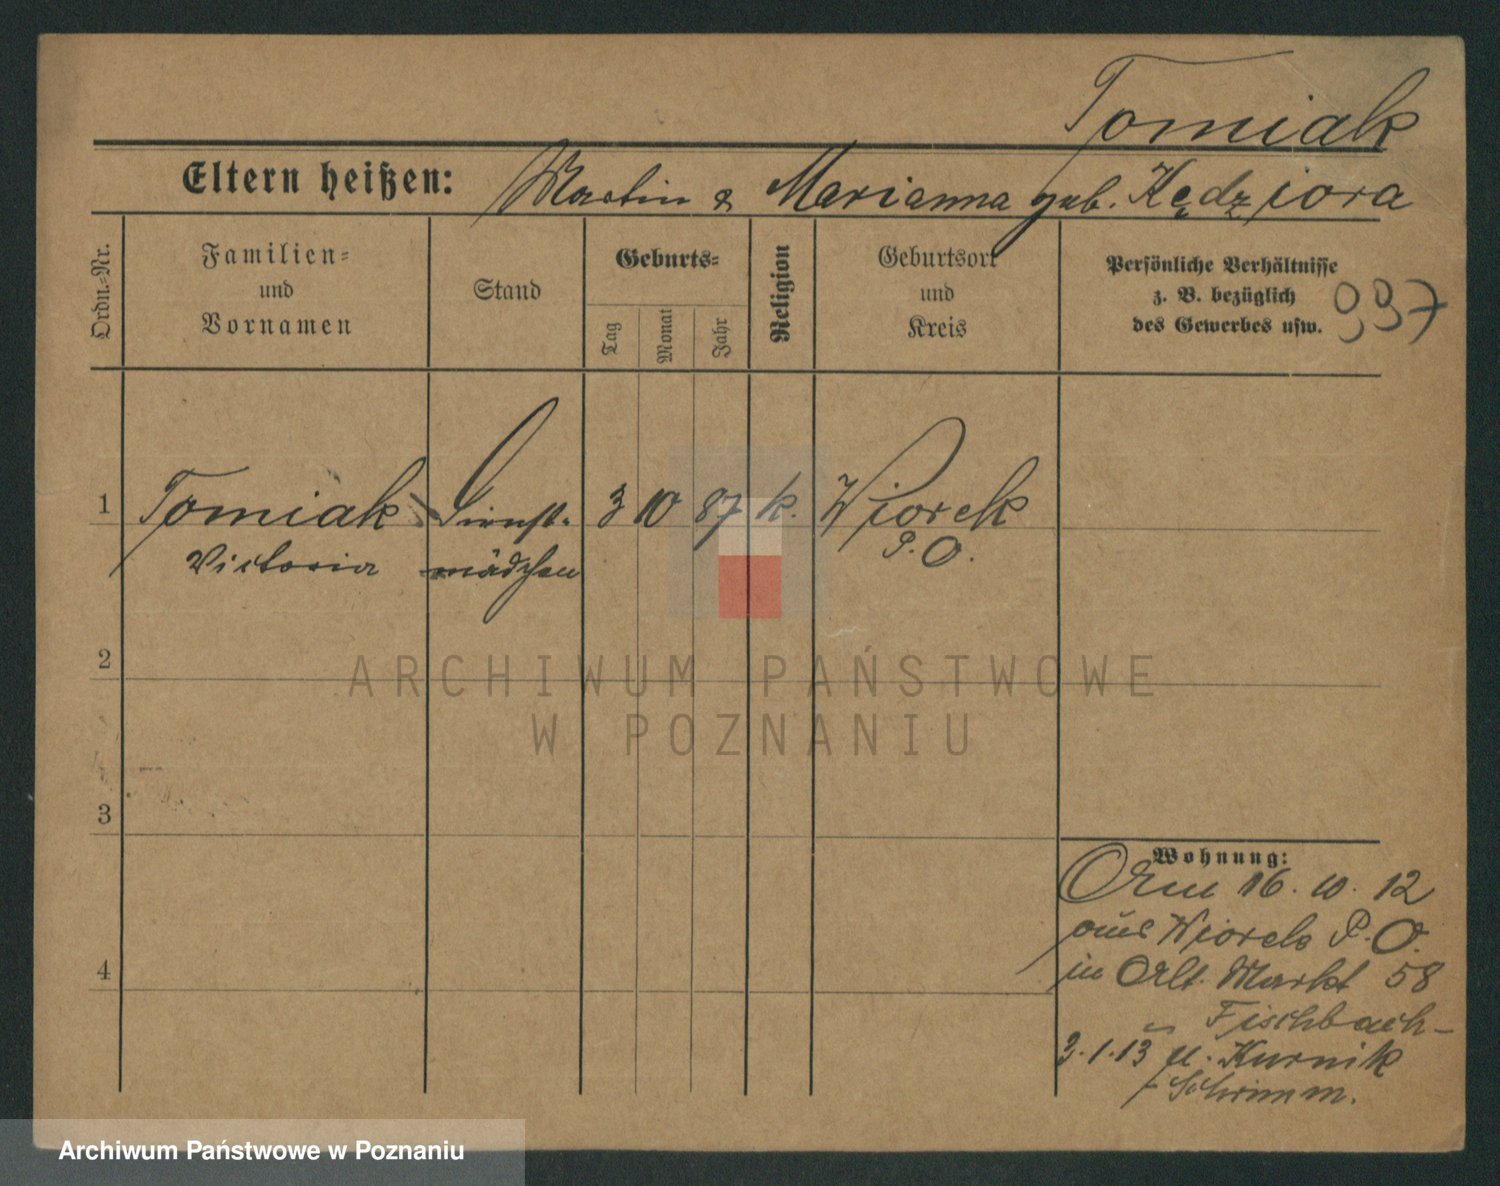 Tomiak
Eltern heißen: Martin & Marianna geb. Kędziora
Ordn.=Nr.
Familien=
und
Vornamen
Stand
Geburts=
Tag
Monat
Jahr
Religion
Geburtsort
und
Kreis
Persönliche Verhältnisse
z. B. bezüglich
des Gewerbes usw.
937
1 Tomiak Dienst- 3 10 87 k. Wiorek
Victoria mädchen P. O.
2
3
4
Wohnung:
Am 16. 10. 12
aus Wiorek P. O.
in Alt. Markt 58
Fischbach-
3.1.13 n. Kurnik
Schrimm.
ARCHIWUM PAŃSTWOWE
W POZNANIU
Archiwum Państwowe w Poznaniu